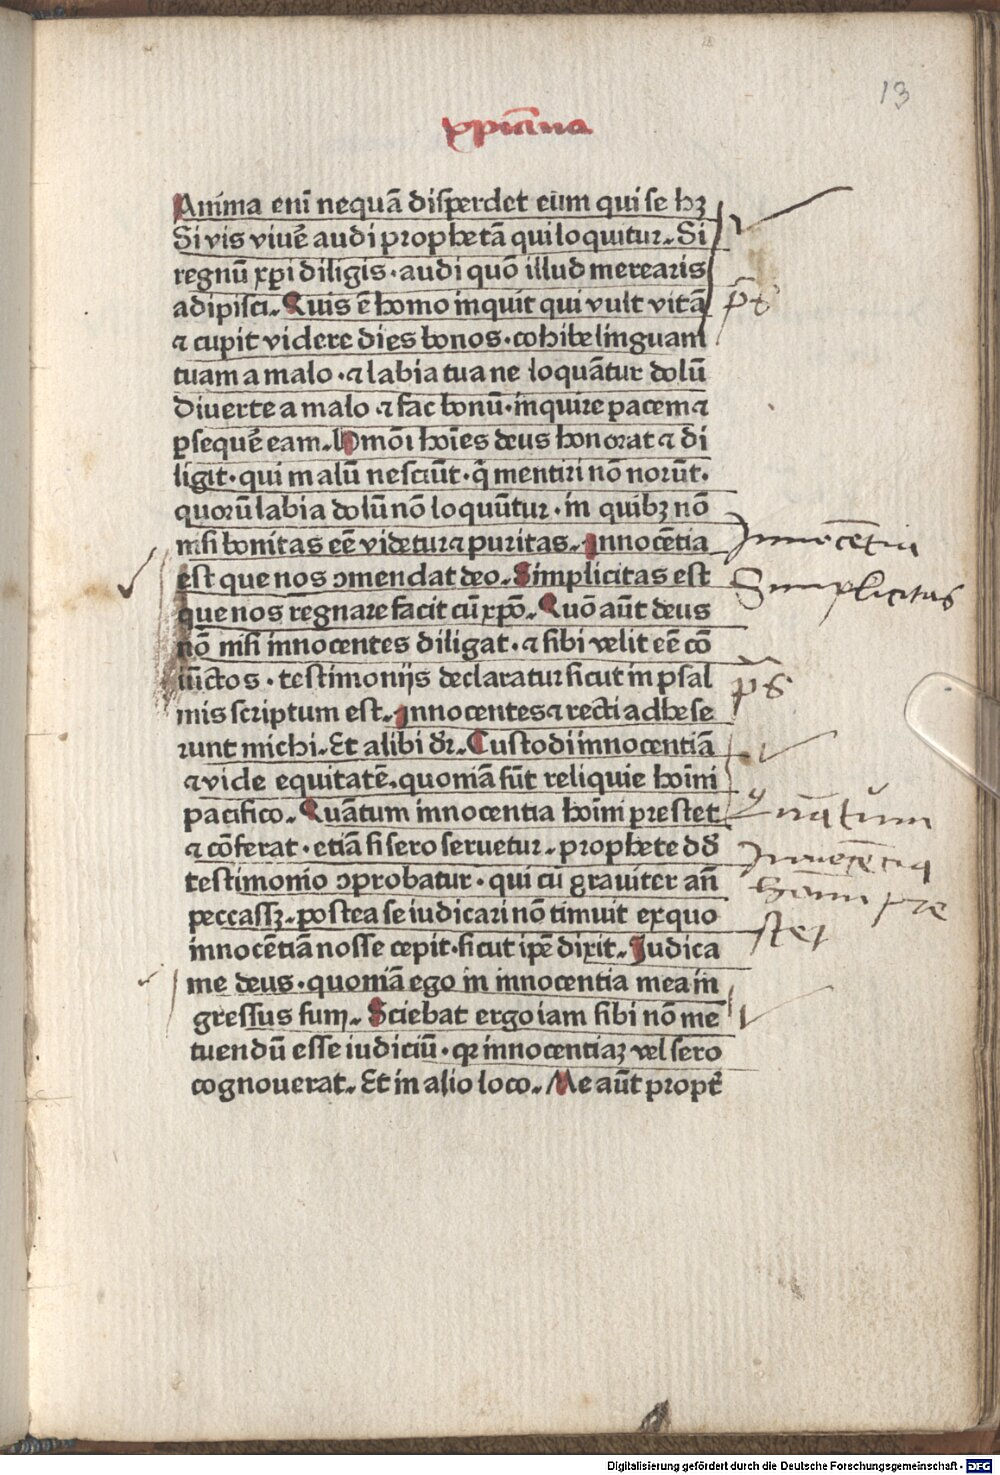 13
xp̄iana
Anima eni̅ nequā disperdet eum qui se hꝫ
Si vis viue̅ audi prophetā qui loquitur. Si
regnū xp̄i diligis · audi quō illud merearis
adipisci. Quis ē homo inquit qui vult vitā
ps̄
⁊ cupit videre dies bonos · cohibe linguam
tuam a malo · ⁊ labia tua ne loquātur dolū
Diuerte a malo ⁊ fac bonū · inquire pacem ⁊
ꝑseque̅ eam. homōi hoīes deus honorat ⁊ di
ligit · qui malū nesciūt · q̄ mentiri nō norūt ·
quorū labia dolū nō loquūtur · in quibꝫ nō
nisi bonitas ee̅ videtur ⁊ puritas. Innocētia
Innocētia
est que nos ꝯmendat deo. Simplicitas est
Simplicitas
que nos regnare facit cū xp̄o. Quō aūt deus
nō nisi innocentes diligat · ⁊ sibi velit ee̅ cō
iūctos · testimonijs declaratur sicut in psal
ps̄
mis scriptum est. Innocentes ⁊ recti adhese
runt michi. Et alibi dr̄. Custodi innocentiā
⁊ vide equitatē. quoniā sūt reliquie hoīni
pacifico. Quātum innocentia hoīni prestet
Quātum
⁊ cōferat · etiā si sero seruetur. prophete dd̄
Innocētia
testimonio ꝯprobatur · qui cū grauiter an̄
hoīni pre
peccassꝫ. postea se iudicari nō timuit ex quo
stet
innocētiā nosse cepit · sicut ipe̅ dixit. Judica
me deus · quoniā ego in innocentia mea in
gressus sum. Sciebat ergo iam sibi nō me
tuendū esse iudiciū · qꝛ innocentiaꝫ vel sero
cognouerat. Et in alio loco. Me aūt propt̄
Digitalisierung gefördert durch die Deutsche Forschungsgemeinschaft - DFG